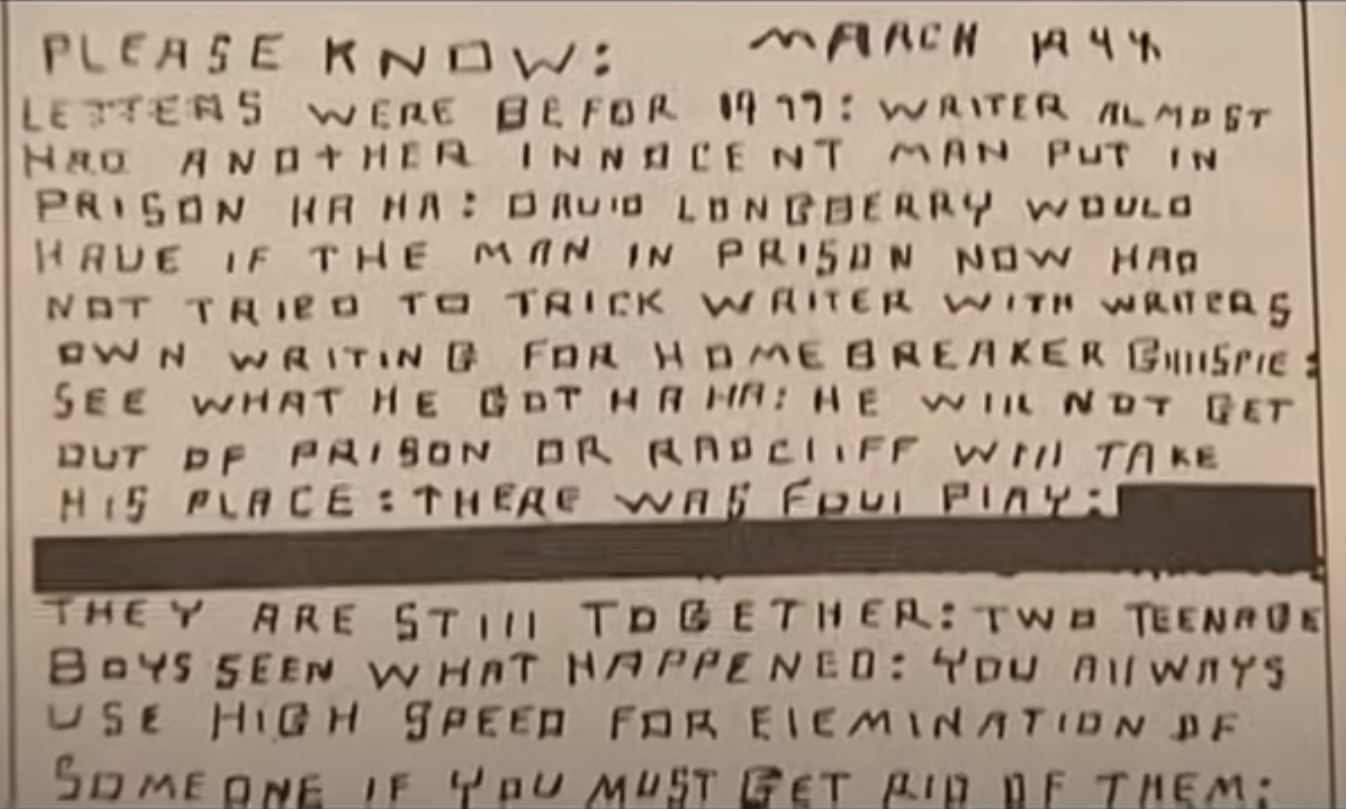 PLEASE KNOW: MARCH 1944
LETTERS WERE BEFOR 1977: WRITER ALMOST
HAD ANOTHER INNOCENT MAN PUT IN
PRISON HA HA: DAVID LONGBERRY WOULD
HAVE IF THE MAN IN PRISON NOW HAD
NOT TRIED TO TRICK WRITER WITH WRITERS
OWN WRITING FOR HOMEBREAKER GIllISPIE:
SEE WHAT HE GOT HA HA: HE WIll NOT GET
OUT OF PRISON OR RADClIFF WIll TAKE
HIS PLACE: THERE WAS FOUl PlAY:
THEY ARE STIll TOGETHER: TWO TEENAGE
BOYS SEEN WHAT HAPPENED: YOU AllWAYS
USE HIGH SPEED FOR ElEMINATION OF
SOMEONE IF YOU MUST GET RID OF THEM: